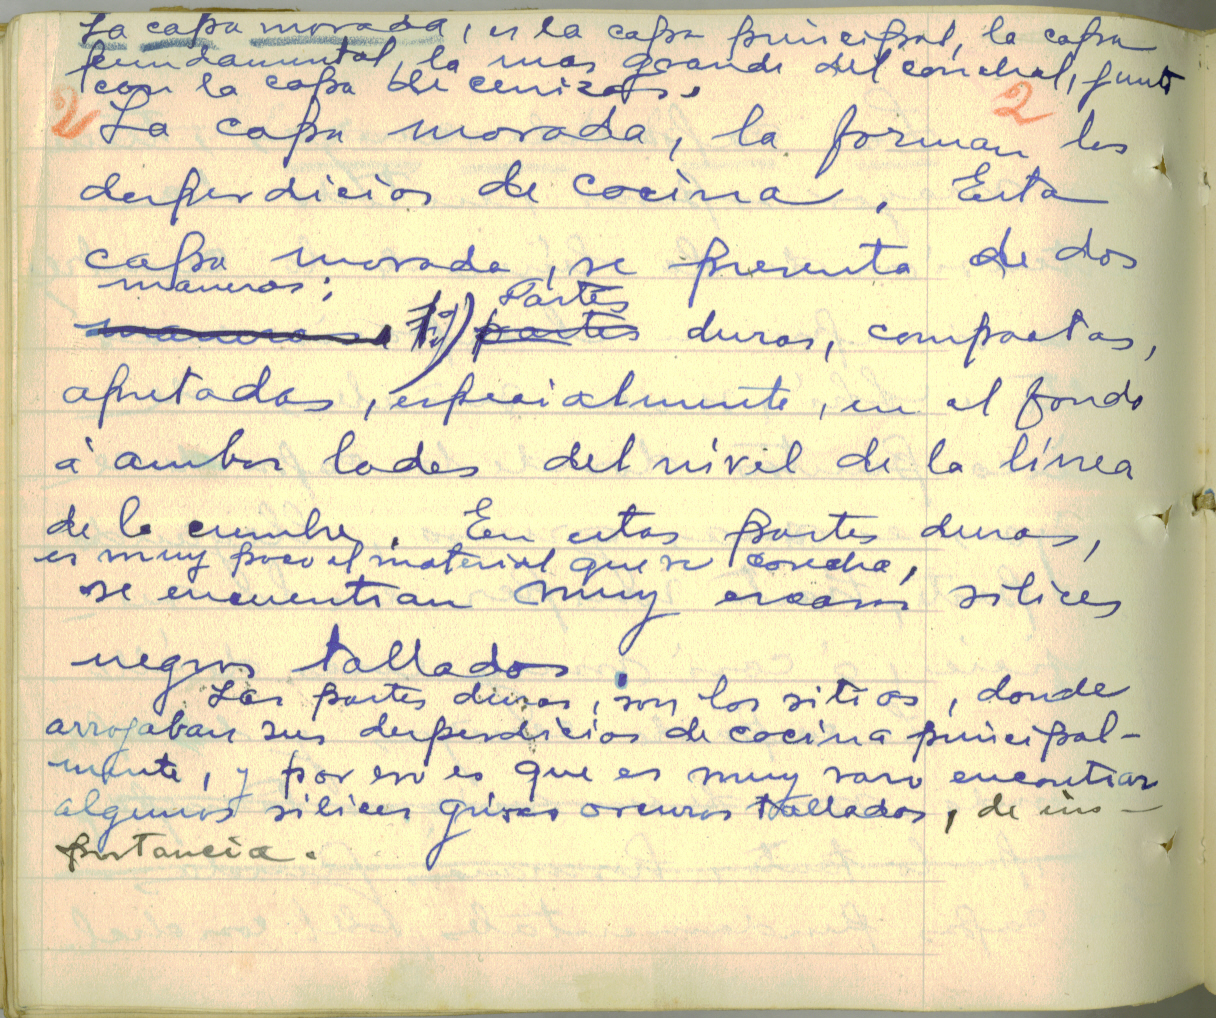 La capa morada, es la capa principal, la capa
fundamental, la mas grande del conchal, junto
con la capa de cenizas.
2 2
La capa morada, la forman los
desperdicios de cocina. Esta
capa morada, se presenta de dos
maneras;
maneras. 1º) Partes
partes duras, compactas,
apretadas, especialmente, en el fondo
á ambos lados del nivel de la línea
de la cumbre. En estas partes duras,
es muy poco el material que se cosecha,
se encuentran muy escasos silices
negros tallados.
Las partes duras, son los sitios, donde
arrojaban sus desperdicios de cocina principal-
mente, y por eso es que es muy raro encontrar
algunos silices grises oscuros tallados, de im-
portancia.